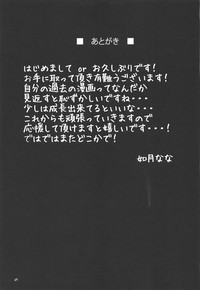 ■ あとがき ■
はじめまして or お久しぶりです!
お手に取って頂き有難うございます!
自分の過去の漫画ってなんだか
見返すと恥ずかしいですね・・・
少しは成長出来てるといいな・・・
これからも頑張っていきますので
応援して頂けますと嬉しいです・・・!
ではではまたどこかで!
如月なな